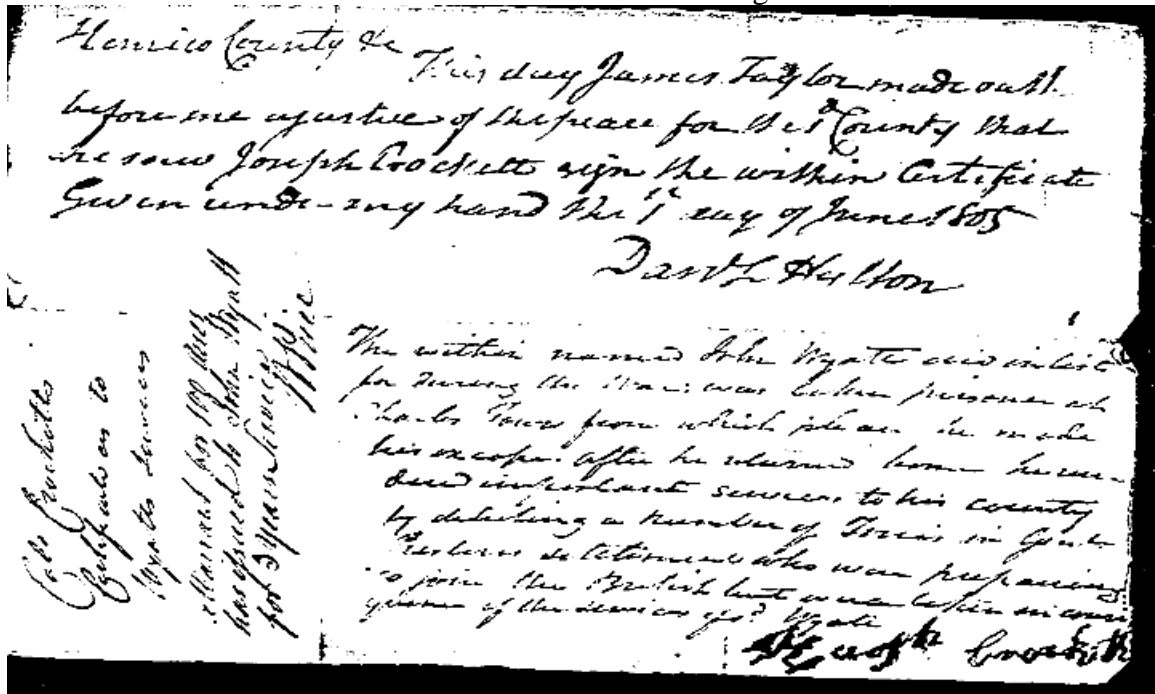 Henrico County &c
This day James Taylor made oath
before me a justice of the peace for the sd County that
he saw Joseph Crockett sign the within Certificate
Given under my hand this 1st day of June 1805
Danl L Hylton
The within named John Wyatt did inlist
for during the War; was taken prisoner at
Charles Town from which place he made
his escape. after he returned home he ren-
dered important services to his county
by detecting a number of Tories in
Western settlements who were preparing
to join the British but were taken in conse
quence of the services of sd Wyatt
Joseph Crockett
Colo Crocketts
Certificate as to
Wyatts Services
a Warrant for 100 acres
has issued to John Wyatt
for 3 years Service
W Price